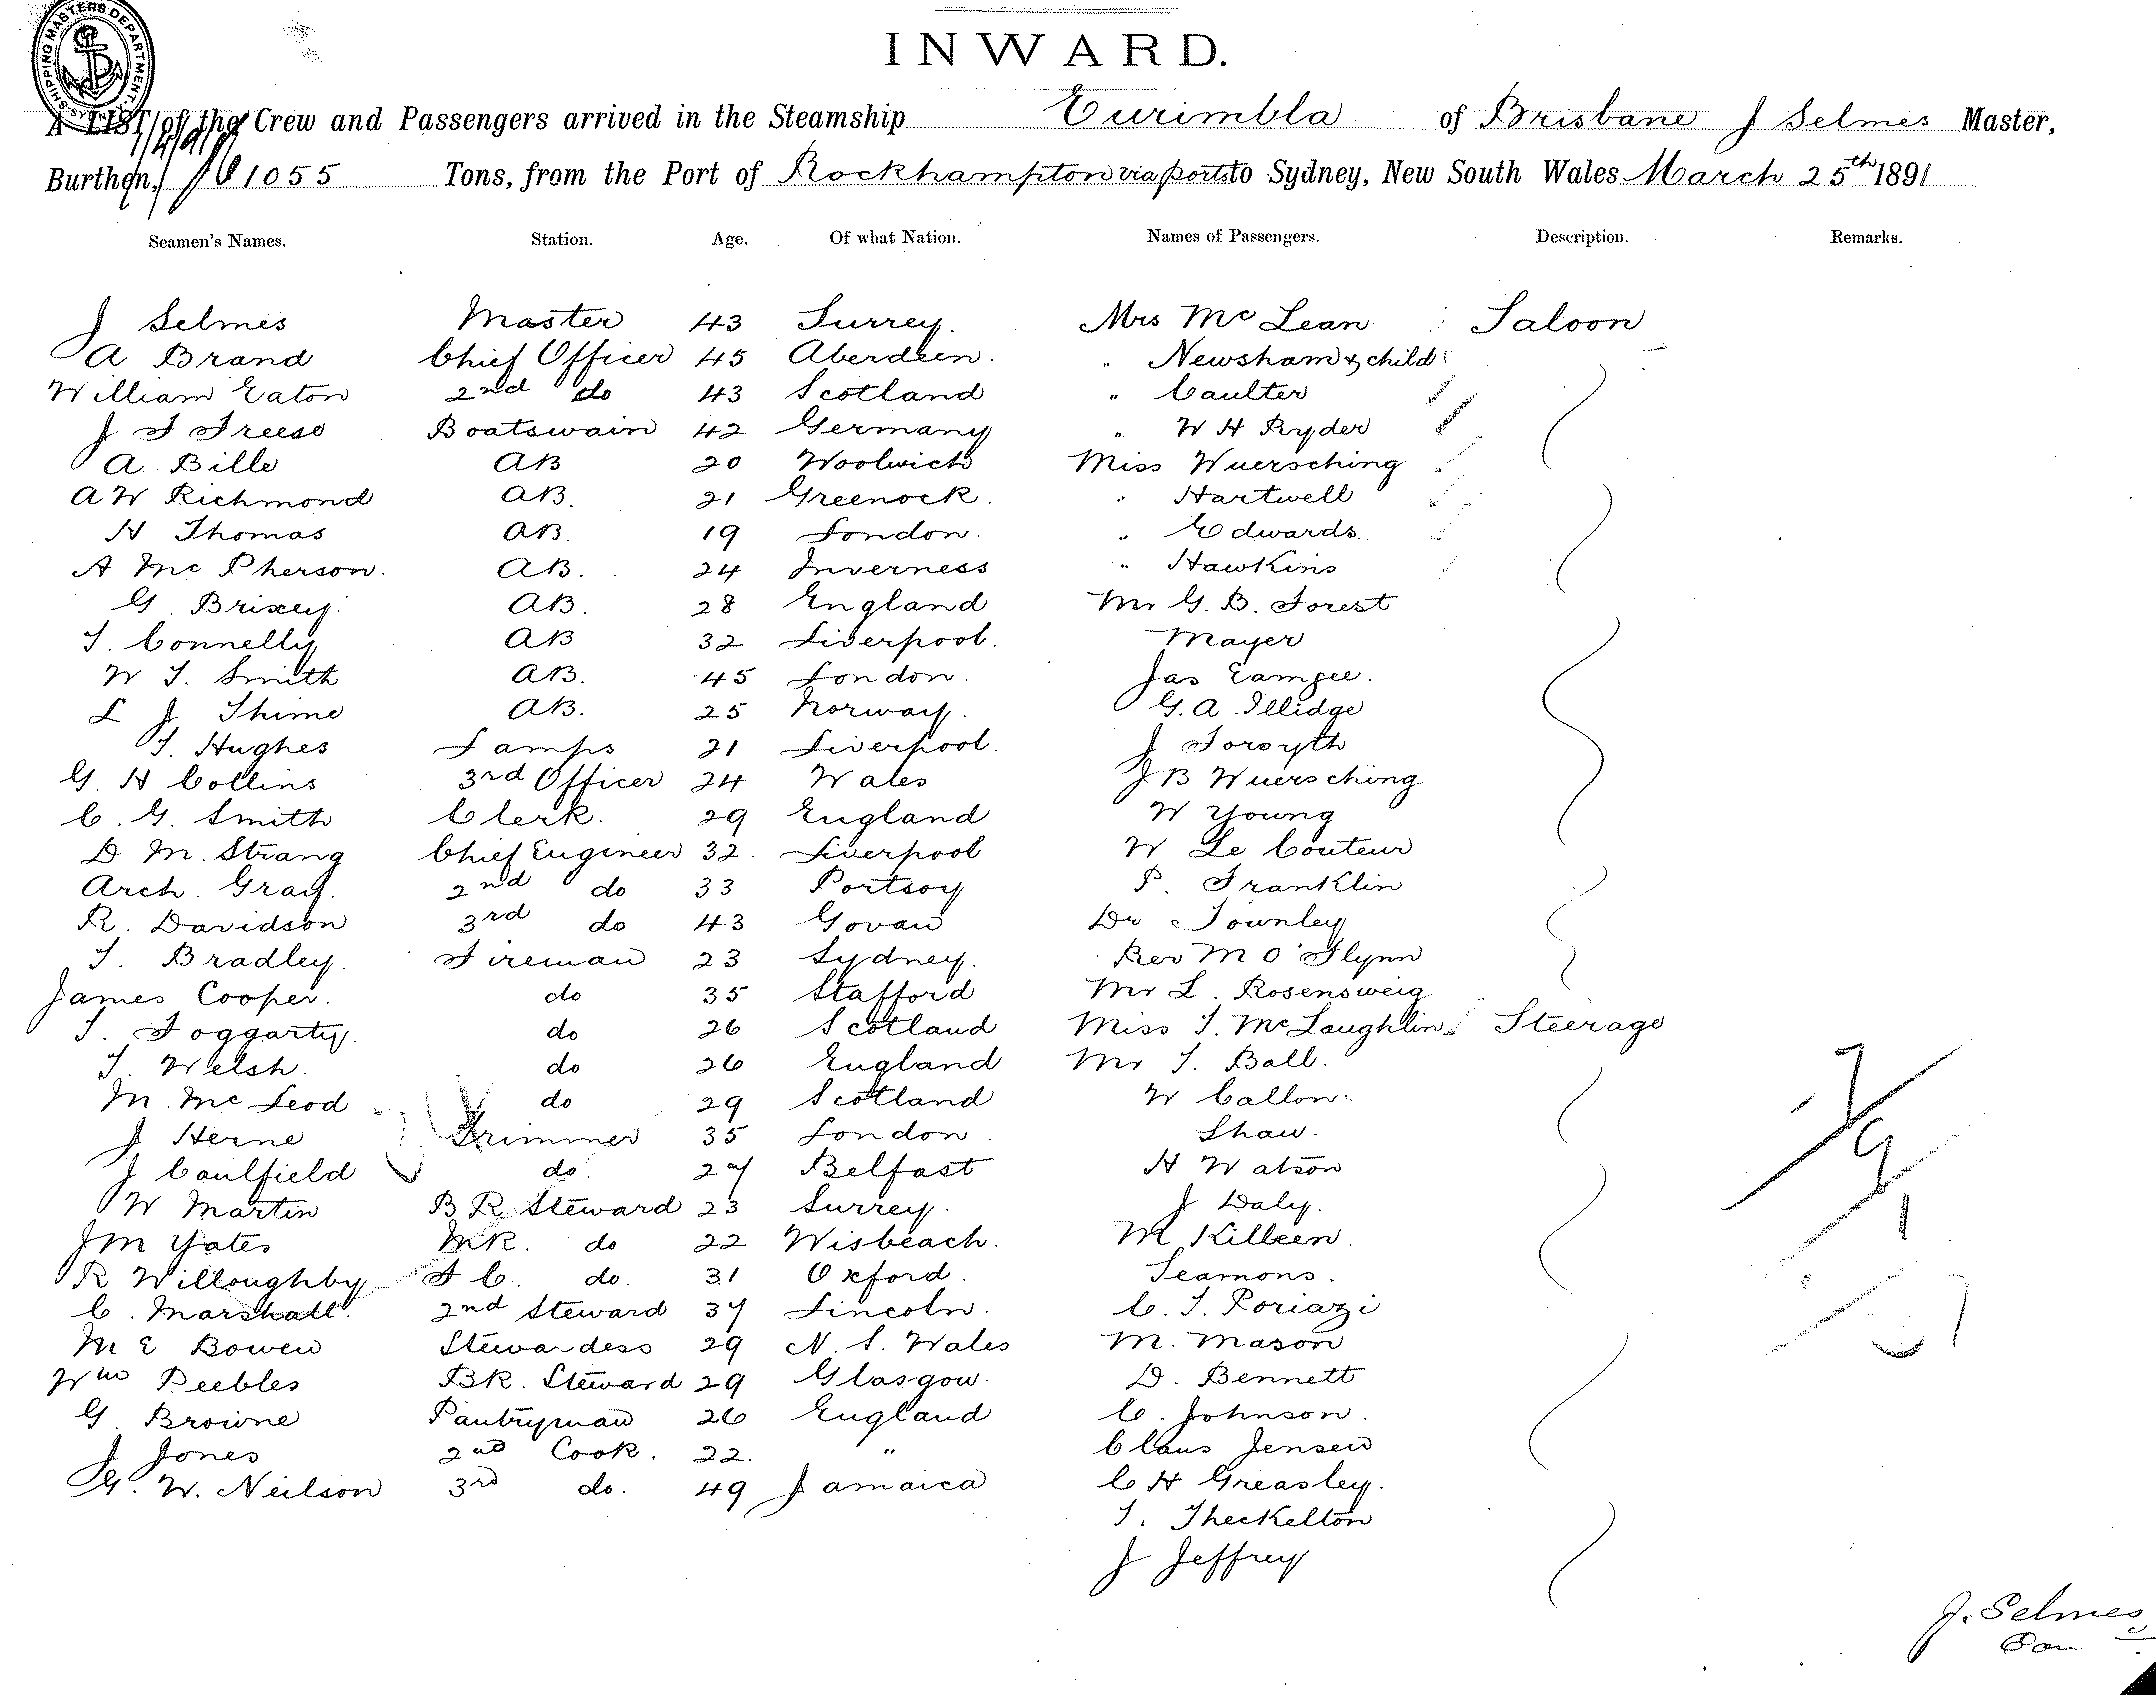 SHIPPING MASTERS DEPARTMENT
INWARD.
A LIST of the Crew and Passengers arrived in the Steamship Eurimbla of Brisbane J Selmes Master,
Burthen, 1055 Tons, from the Port of Rockhampton via ports to Sydney, New South Wales March 25th 1891
Seamen's Names. Station. Age. Of what Nation. Names of Passengers. Description. Remarks.
J Selmes Master 43 Surrey. Mrs McLean Saloon
A Brand Chief Officer 45 Aberdeen. " Newsham & child
William Eaton 2nd do 43 Scotland " Caulter
J F Freese Boatswain 42 Germany " W H Ryder
A. Bille AB 20 Woolwich Miss Wuersching
A W Richmond AB. 21 Greenock. " Hartwell
H Thomas AB. 19 London. " Edwards
A McPherson. AB. 24 Inverness " Hawkins
G. Brixey. AB. 28 England Mr G. B. Forest
T. Connelly AB 32 Liverpool. Mayer
W T. Smith AB. 45 London. Jas
L J Thime AB. 25 Norway. G. A Illidge
T. Hughes Lamps 21 Liverpool. J Forsyth
G H Collins 3rd Officer 24 Wales J B Wuersching
C. G. Smith Clerk. 29 England W Young
D M. Strang Chief Engineer 32. Liverpool W Le Couteur
Arch. Gray. 2nd do 33 Portsoy P. Franklin
R. Davidson 3rd do 43 Govan Dr Townley
T. Bradley. Fireman 23 Sydney. Rev M O'Flynn
James Cooper. do 35 Stafford Mr L. Rosensweig
T. Foggarty. do 26 Scotland Miss T. McLaughlin Steerage
T. Welsh. do 26 England Mr T. Ball.
M. McLeod do 29 Scotland W Callon.
J Herne Trimmer 35 London Shaw.
J Caulfield do. 27 Belfast H Watson
W Martin B R Steward 23 Surrey. J Daly.
J M Yates MR. do 22 Wisbeach. M Killeen.
R Willoughby F C. do. 31 Oxford. Seamons.
C. Marshall. 2nd Steward 37 Lincoln. C. T. Poriazi
M E Bowen Stewardess 29 N. S. Wales M. Mason
Wm Peebles BK. Steward 29 Glasgow. D. Bennett
G. Browne Pantryman 26 England C. Johnson.
J Jones 2nd Cook. 22. " Claus Jensen
G. W. Neilson 3rd do. 49 Jamaica C H Greasley.
T. Theckelton
J Jeffrey
J. Selmes